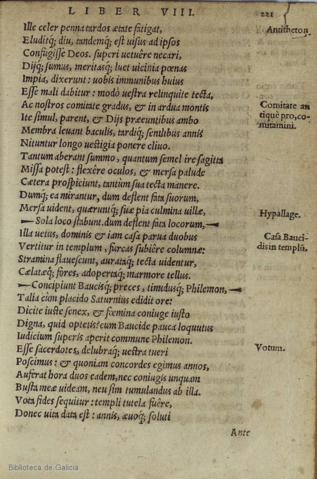 LIBER VIII. 221
Ille celer penna tardos ætate fatigat,
Antitheton.
Eluditq́; diu, tandemq́; est uisus ad ipsos
Confugisse Deos. superi uetuêre necari,
Dijq́; sumus, meritasq́; luet uicinia pœnas
Impia, dixerunt: uobis immunibus huius
Esse mali dabitur: modò uestra relinquite tecta,
Ac nostros comitate gradus, & in ardua montis
Comitate an
Ite simul, parent, & Dijs præeuntibus ambo
tiquè pro, co-
mitamini.
Membra leuant baculis, tardiq́; senilibus annis
Nituntur longo uestigia ponere cliuo.
Tantum aberant summo, quantum semel ire sagitta
Missa potest: flexêre oculos, & mersa palude
Cætera prospiciunt, tantùm sua tecta manere.
Dumq́; ea mirantur, dum deflent fata suorum,
Mersa uident, quæruntq́; suæ pia culmina uillæ,
Hypallage.
Sola loco stabunt. dum deflent fata locorum,
Illa uetus, dominis etiam casa parua duobus
Casa Bauci-
Vertitur in templum, furcas subiêre columnæ:
dis in templũ.
Stramina flauescunt, aurataq́; tecta uidentur,
Cælatæq́; fores, adopertaq́; marmore tellus.
Concipiunt Baucisq́; preces, timidusq́; Philemon,
Talia cùm placido Saturnius edidit ore:
Dicite iuste senex, & fœmina coniuge iusto
Digna, quid optetis: cum Baucide pauca loquutus
Iudicium superis aperit commune Philemon.
Esse sacerdotes, delubraq́; uestra tueri
Votum.
Poscimus: & quoniam concordes egimus annos,
Auferat hora duos eadem, nec coniugis unquam
Busta meæ uideam, neu sim tumulandus ab illa.
Vota fides sequitur: templi tutela fuêre,
Donec uita data est: annis, æuoq́; soluti
Ante
Biblioteca de Galicia